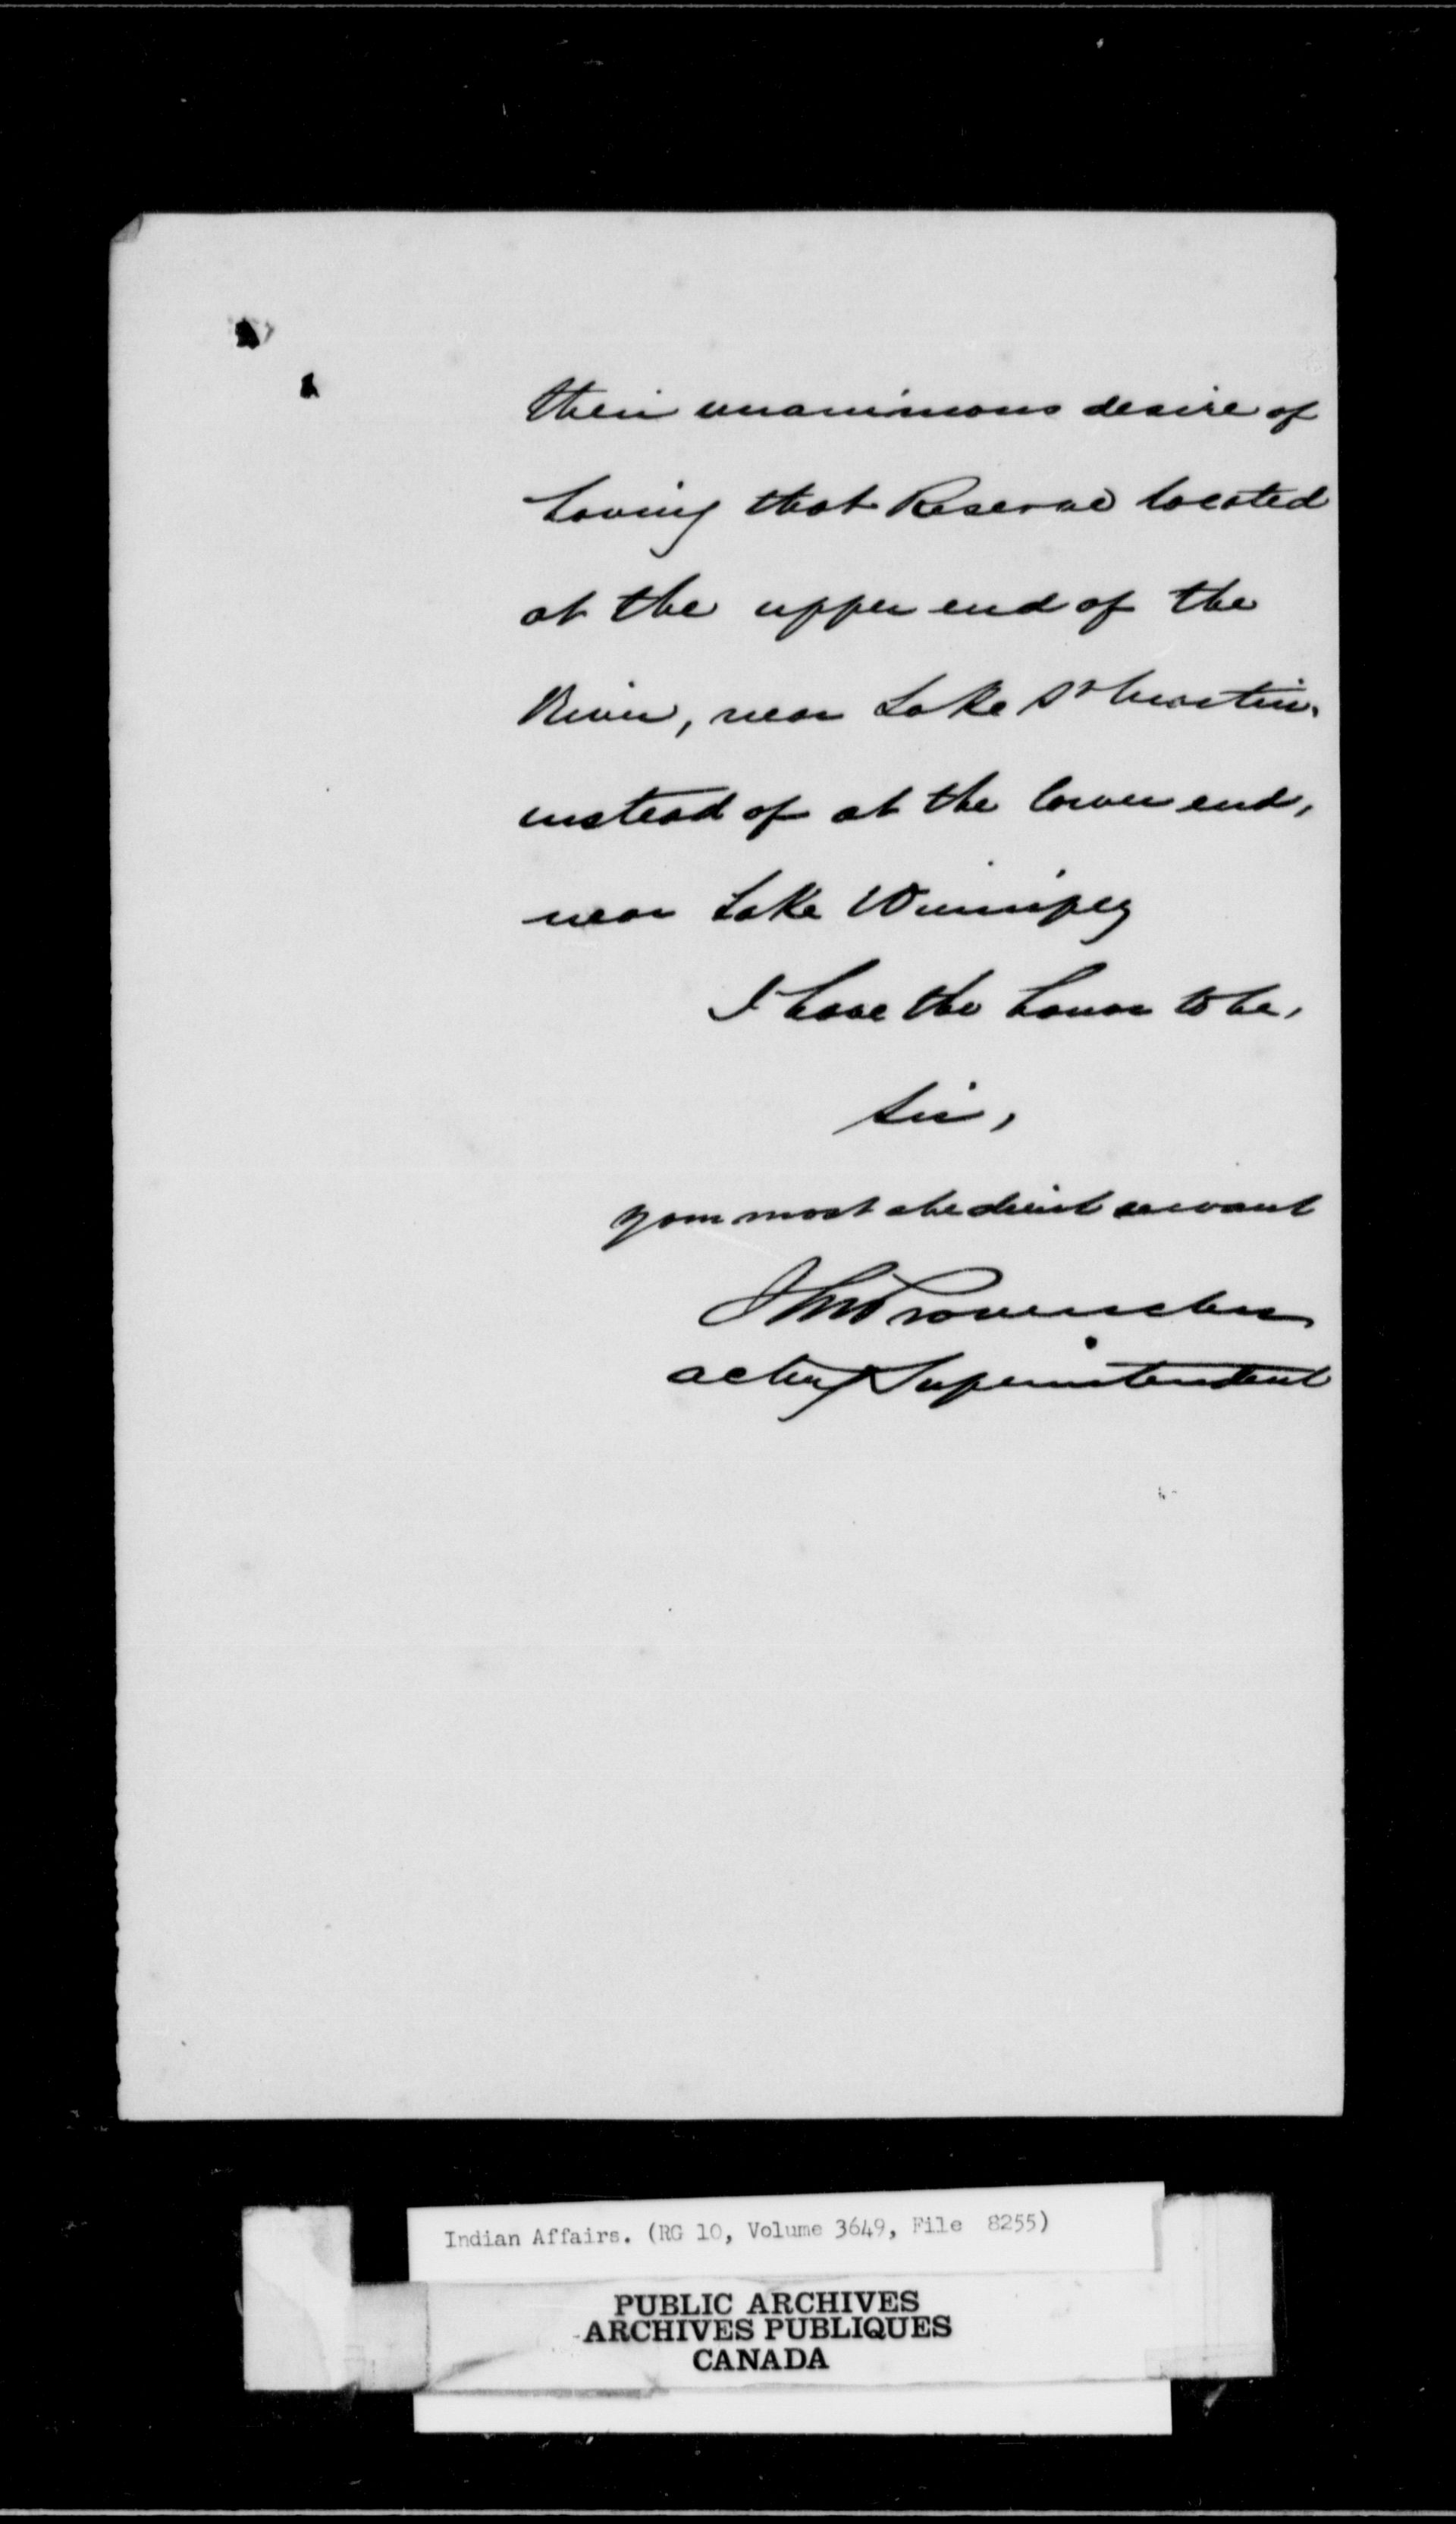 their unanimous desire of
having that Reserve located
at the upper end of the
River, near Lake St Martin,
instead of at the lower end,
near Lake Winnipeg
I have the honor to be,
Sir,
your most obedient servant
J A N Provencher
acting Superintendent
Indian Affairs. (RG 10, Volume 3649, File 8255)
PUBLIC ARCHIVES
ARCHIVES PUBLIQUES
CANADA